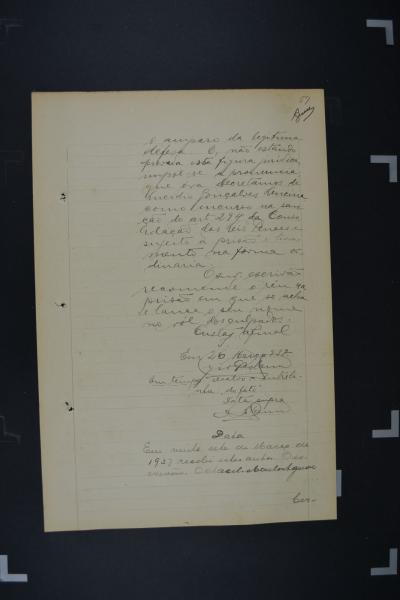 51
o amparo da legitima
defesa. E, não estando
provada esta figura juridica,
impõe-se a pronuncia,
que ora decretamos de
Gonçalves Pereira
como incurso na san-
ção do art. 294 da Conso-
lidação das Leis Penaes e
sujeito á prisão e livra-
mento na forma or-
dinaria.
O sr. escrivão
recommende o réu na
prisão em que se acha
e lance o seu nome
no ról dos culpados.
Custas afinal
Em 26 Março 937
Em tempo
Data supra
Data
Em vinte sete de Março de
1937 recebi estes autos. O es-
crivão
Cer-